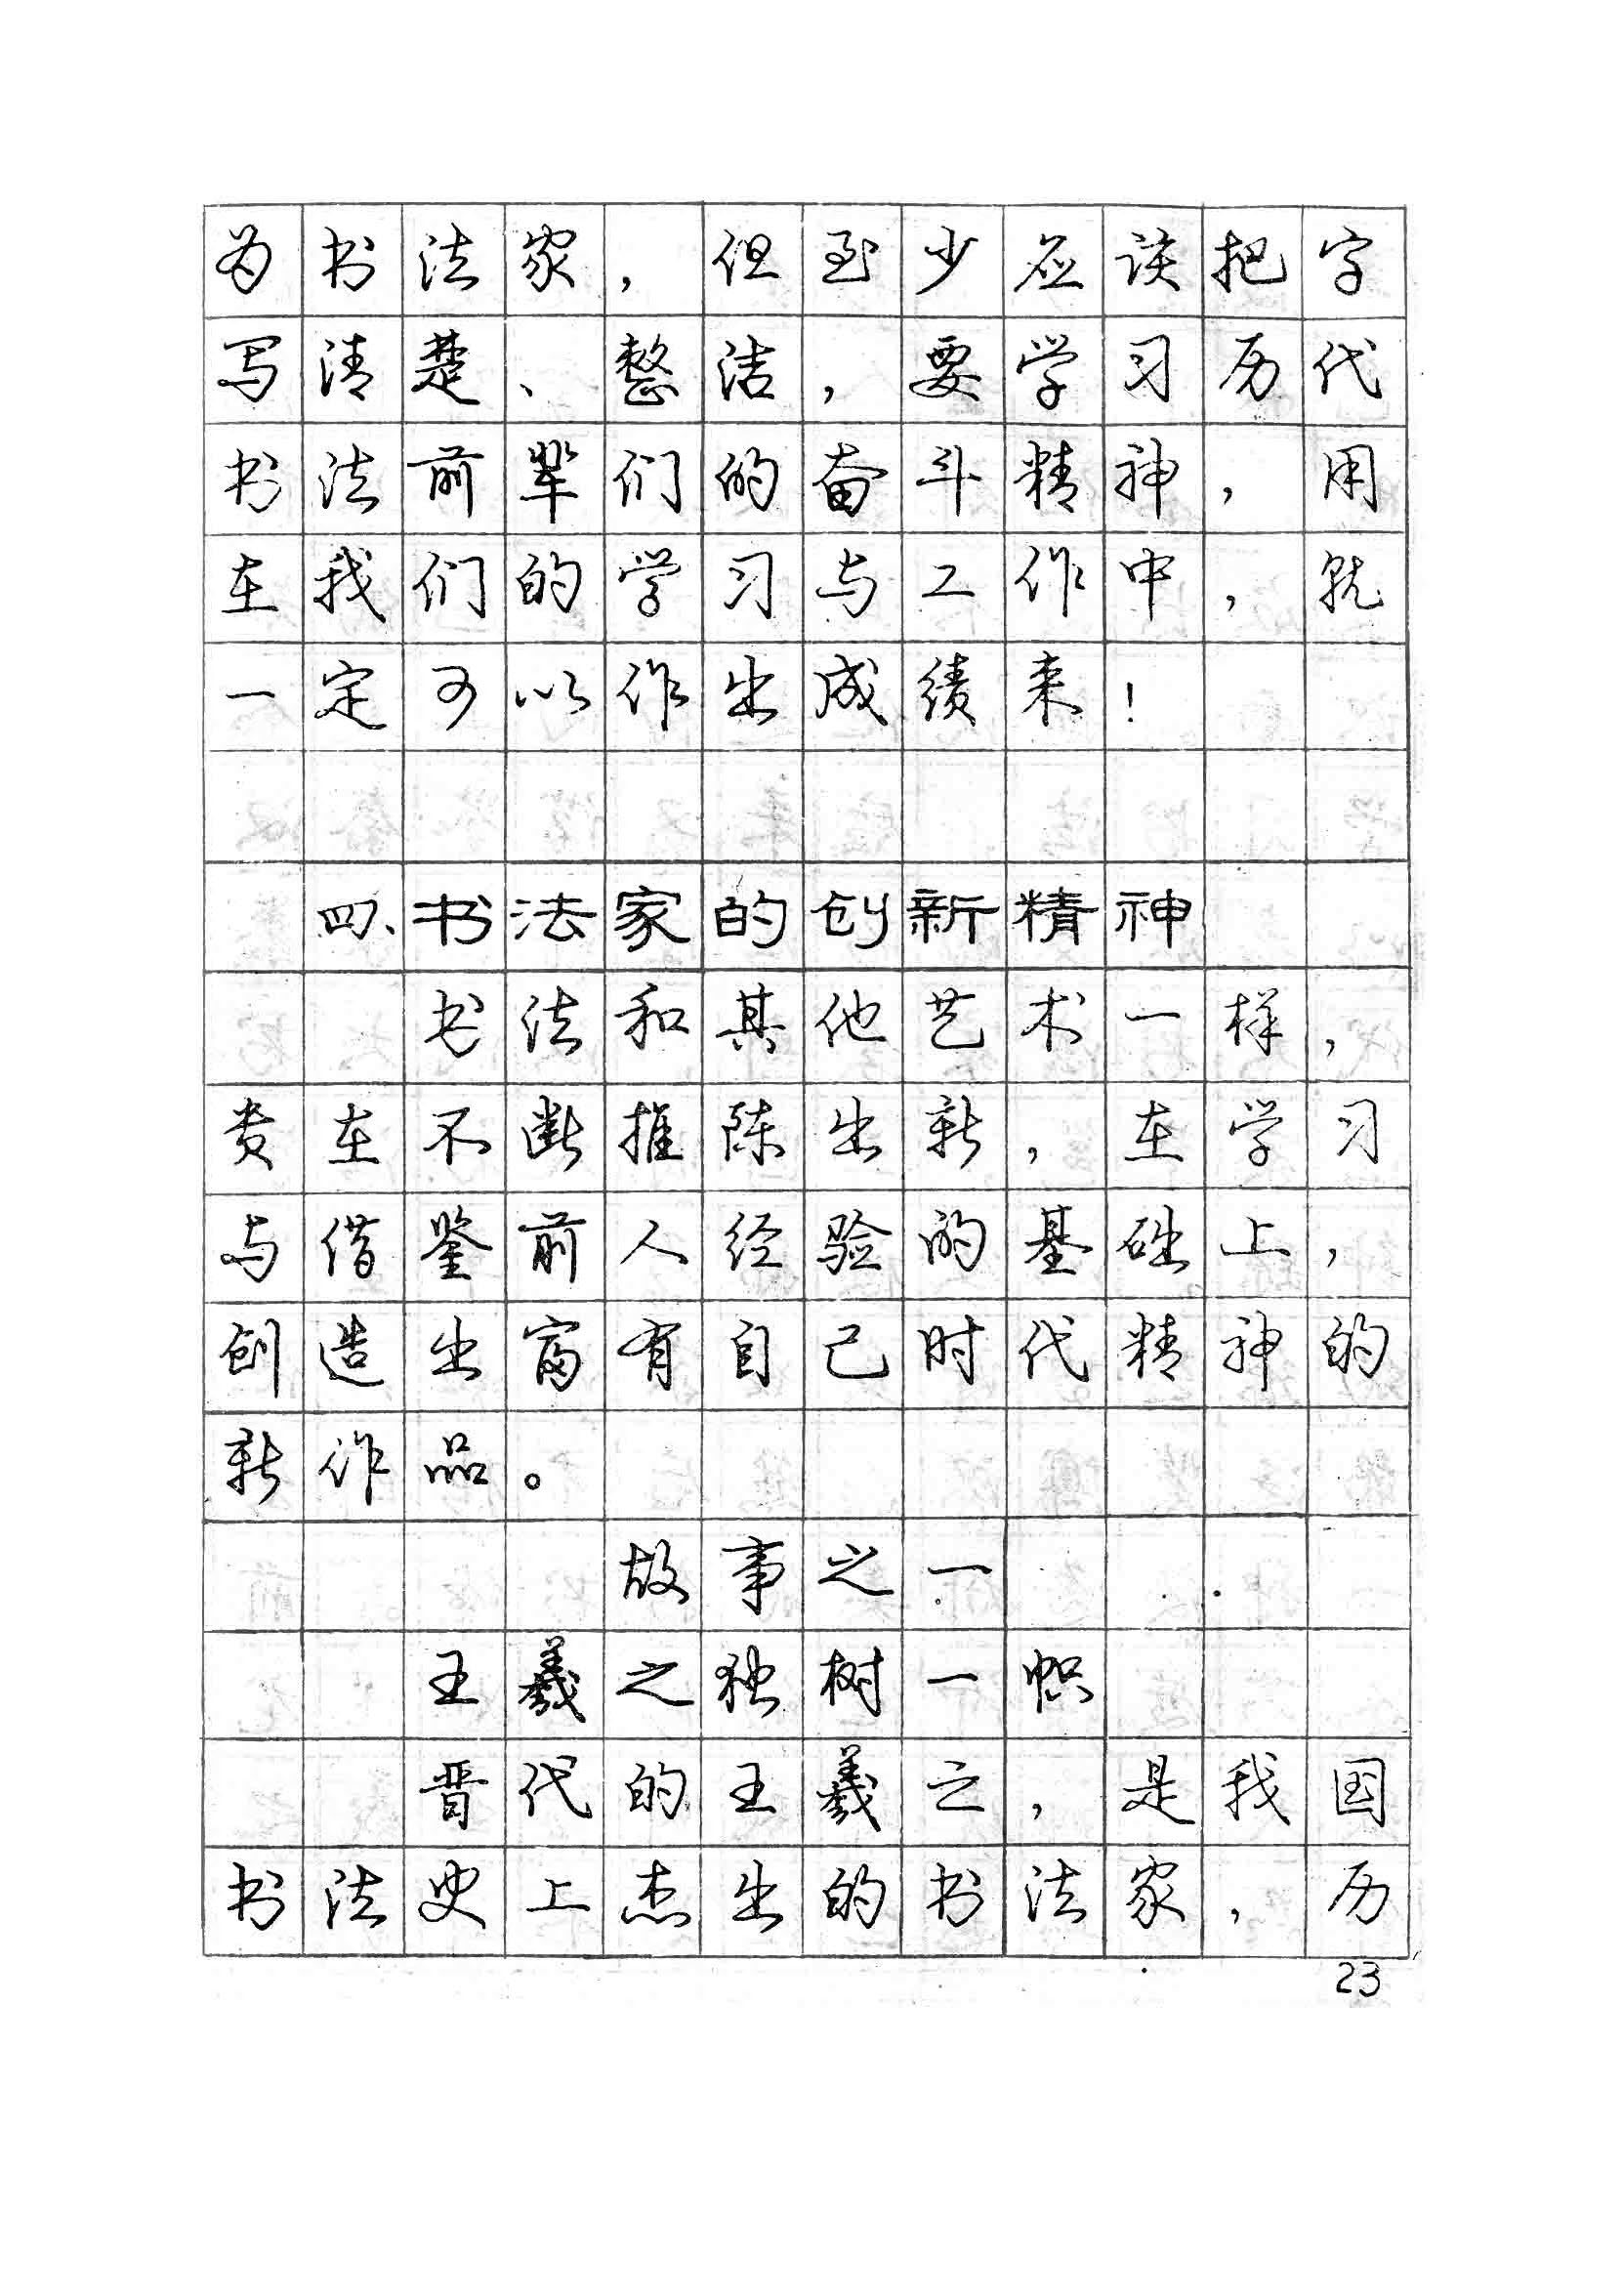 为书法家，但至少应该把字
写清楚、整洁，要学习历代
书法前辈们的奋斗精神，用
在我们的学习与工作中，就
一定可以作出成绩来！
四、书法家的创新精神
书法和其他艺术一样，
贵在不断推陈出新，在学习
与借鉴前人经验的基础上，
创造出富有自己时代精神的
新作品。
故事之一
王羲之独树一帜
晋代的王羲之，是我国
书法史上杰出的书法家，历
23